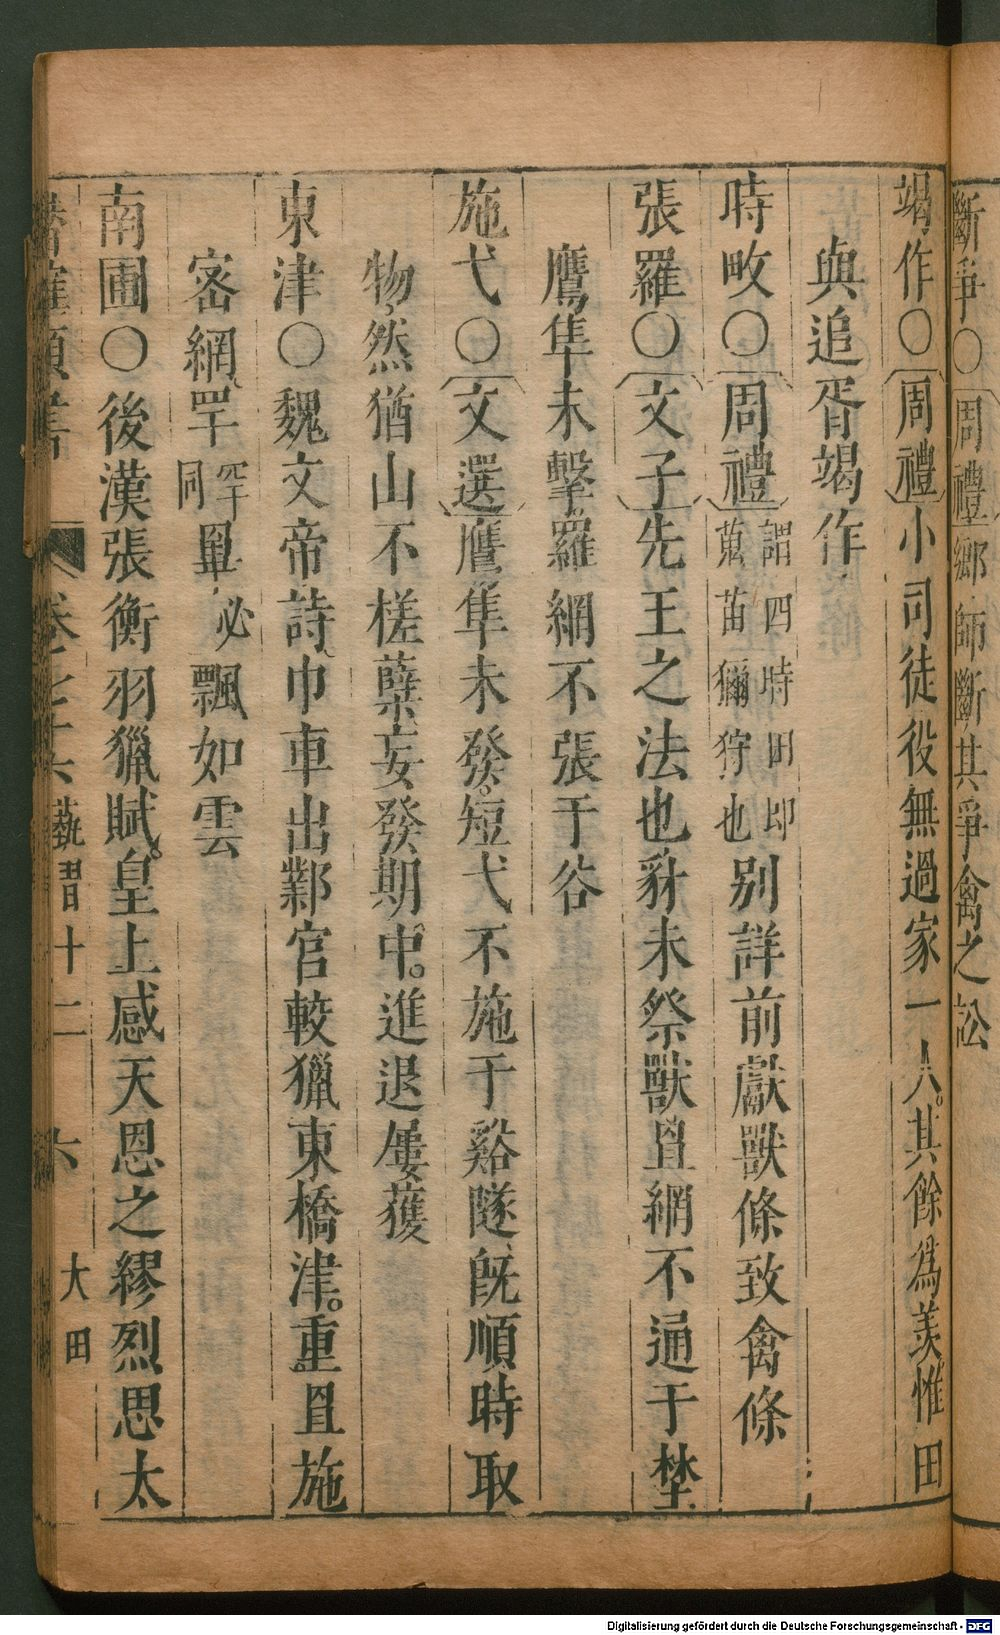 斷爭○周禮鄉師斷其爭禽之訟
竭作○周禮小司徒役無過家一人其餘爲羨惟田
與追胥竭作
時畋○周禮謂四時田卽蒐苗獮狩也別詳前獻獸條致禽條
張羅○文子先王之法也豺未祭獸罝網不通于埜
鷹隼未擊羅網不張于谷
施弋○文選鷹隼未發短弋不施于谿隧旣順時取
物然猶山不槎蘖妄發期中進退屢獲
東津○魏文帝詩巾車出鄴宮較獵東橋津重罝施
密網罕同罼必飄如雲
南圃○後漢張衡羽獵賦皇上感天恩之繆烈思太
類書
卷七十六 藝習十二 六 大田
Digitalisierung gefördert durch die Deutsche Forschungsgemeinschaft - DFG